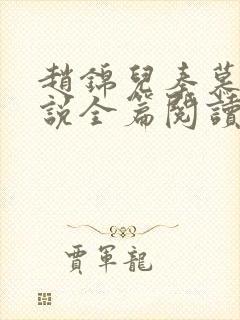 趙錦兒秦慕
說全篇閱讀
賈軍龍